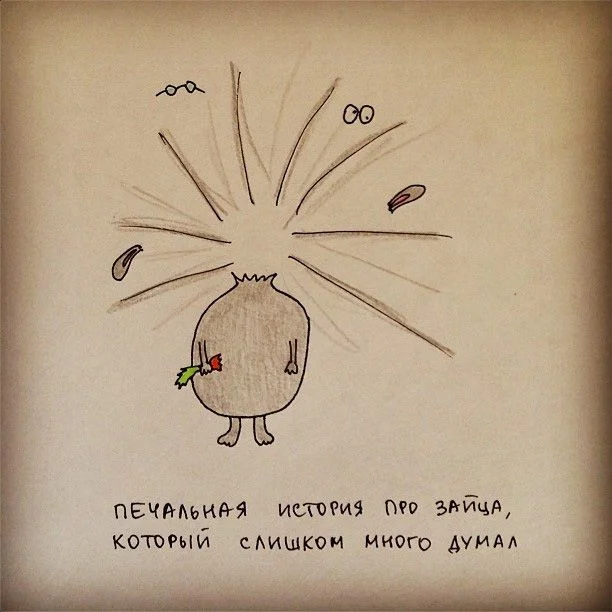 ПЕЧАЛЬНАЯ ИСТОРИЯ ПРО ЗАЙЦА,
КОТОРЫЙ СЛИШКОМ МНОГО ДУМАЛ